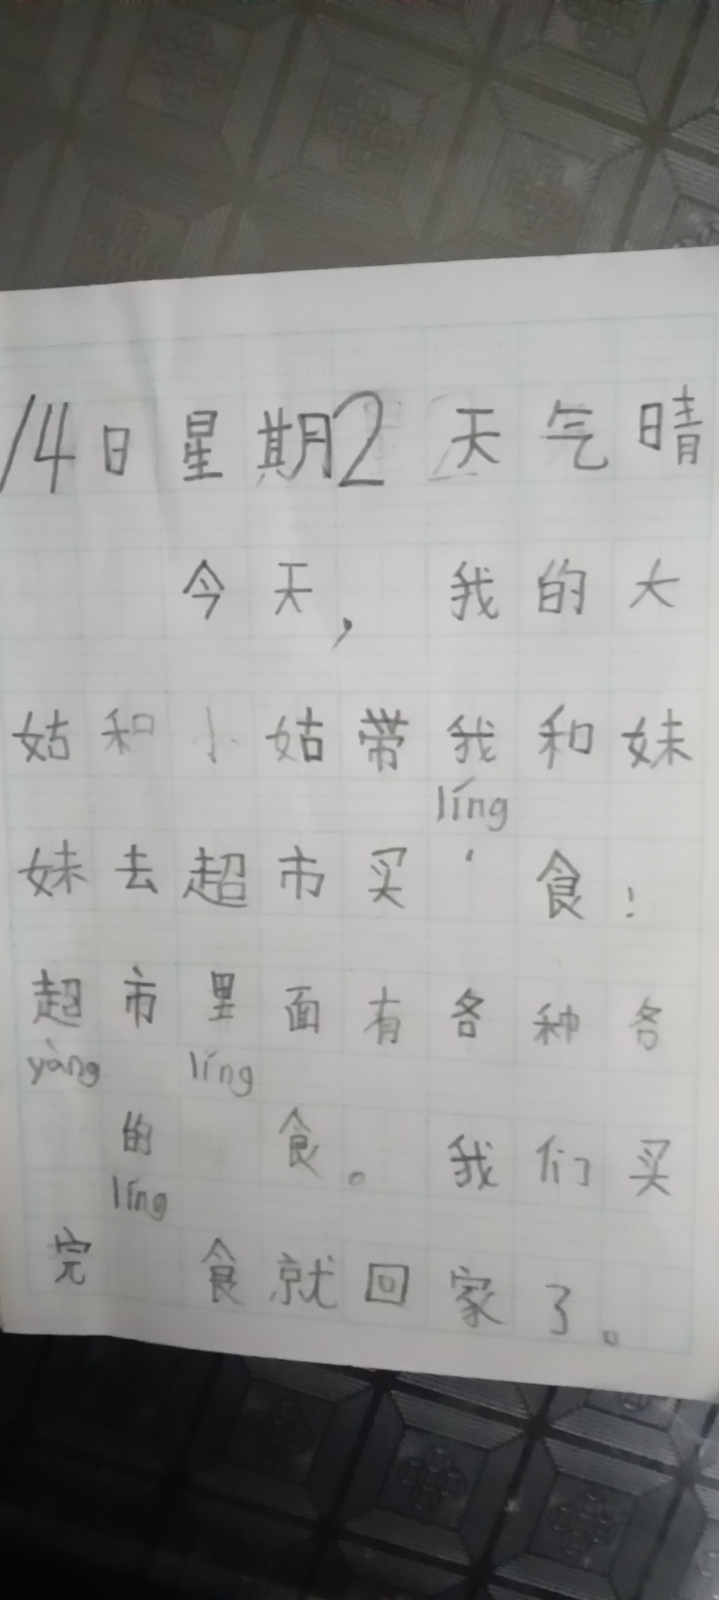 14日星期2天气晴
今天，我的大
姑和小姑带我和妹
líng
妹去超市买 食！
超市里面有各种各
yàng líng
的 食。我们买
líng
完 食就回家了。